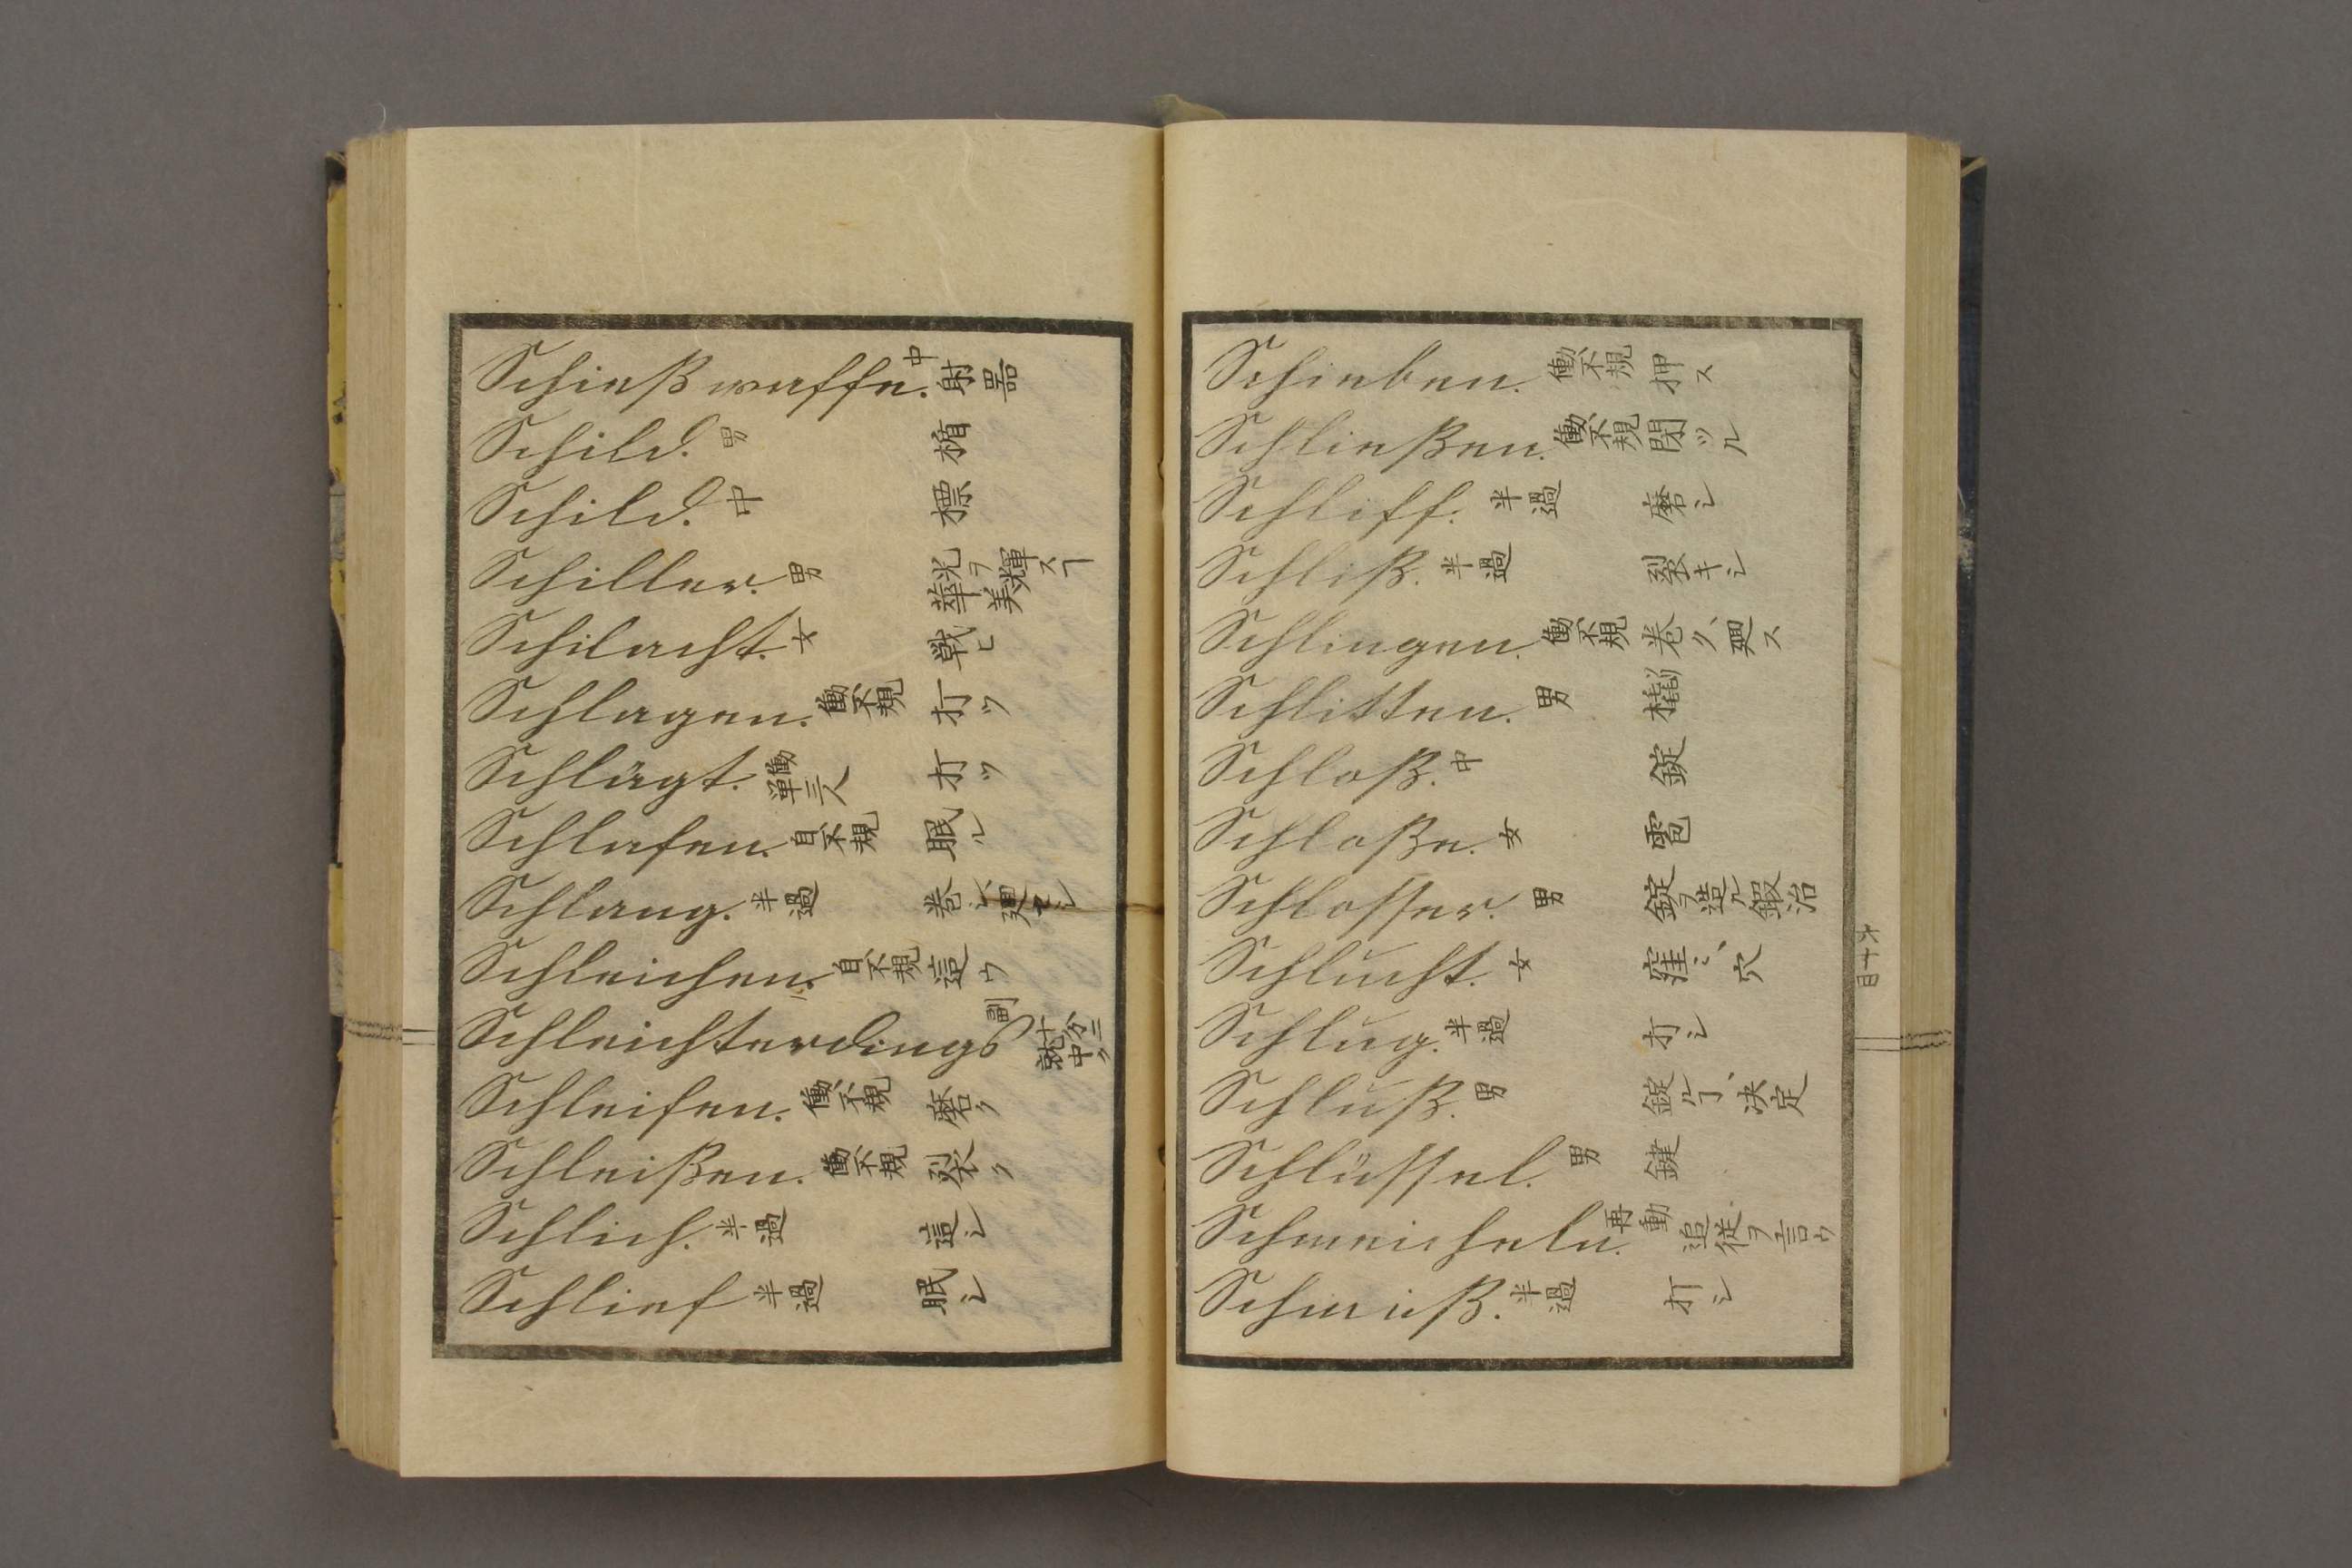 Schießwaffe. 中 射器
Schild. 男 楯
Schild. 中 標
Schiller. 男 華光ヲ美輝スヿ
Schilacht. 女 戦ヒ
Schlagen. 働不規 打ツ
Schlägt. 働三人単 打ツ
Schlafen. 自不規 眠ル
Schlang. 半過 巻シ、廻セシ
Schleichen. 自不規 這ウ
Schleichterdings 副 十分ニ 就中ク
Schleifen. 働不規 磨ク
Schleißen. 働不規 裂ク
Schlich. 半過 這シ
Schlief 半過 眠シ
Schieben. 働不規 押ス
Schließen. 働不規 閉ツル
Schliff. 半過 磨シ
Schliß. 半過 裂キシ
Schlingen. 働不規 巻ク、廻ス
Schlitten. 男 橇
Schloß. 中 錠
Schloße. 女 雹
Schlosser. 男 錠ヲ造ル鍜治
Schlucht. 女 窪ミ、穴
Schlug. 半過 打シ
Schluß. 男 錠ルヿ、决定
Schlüssel. 男 鍵
Schmeicheln. 再動 追従ヲ言ウ
Schmiß. 半過 打シ
六十目